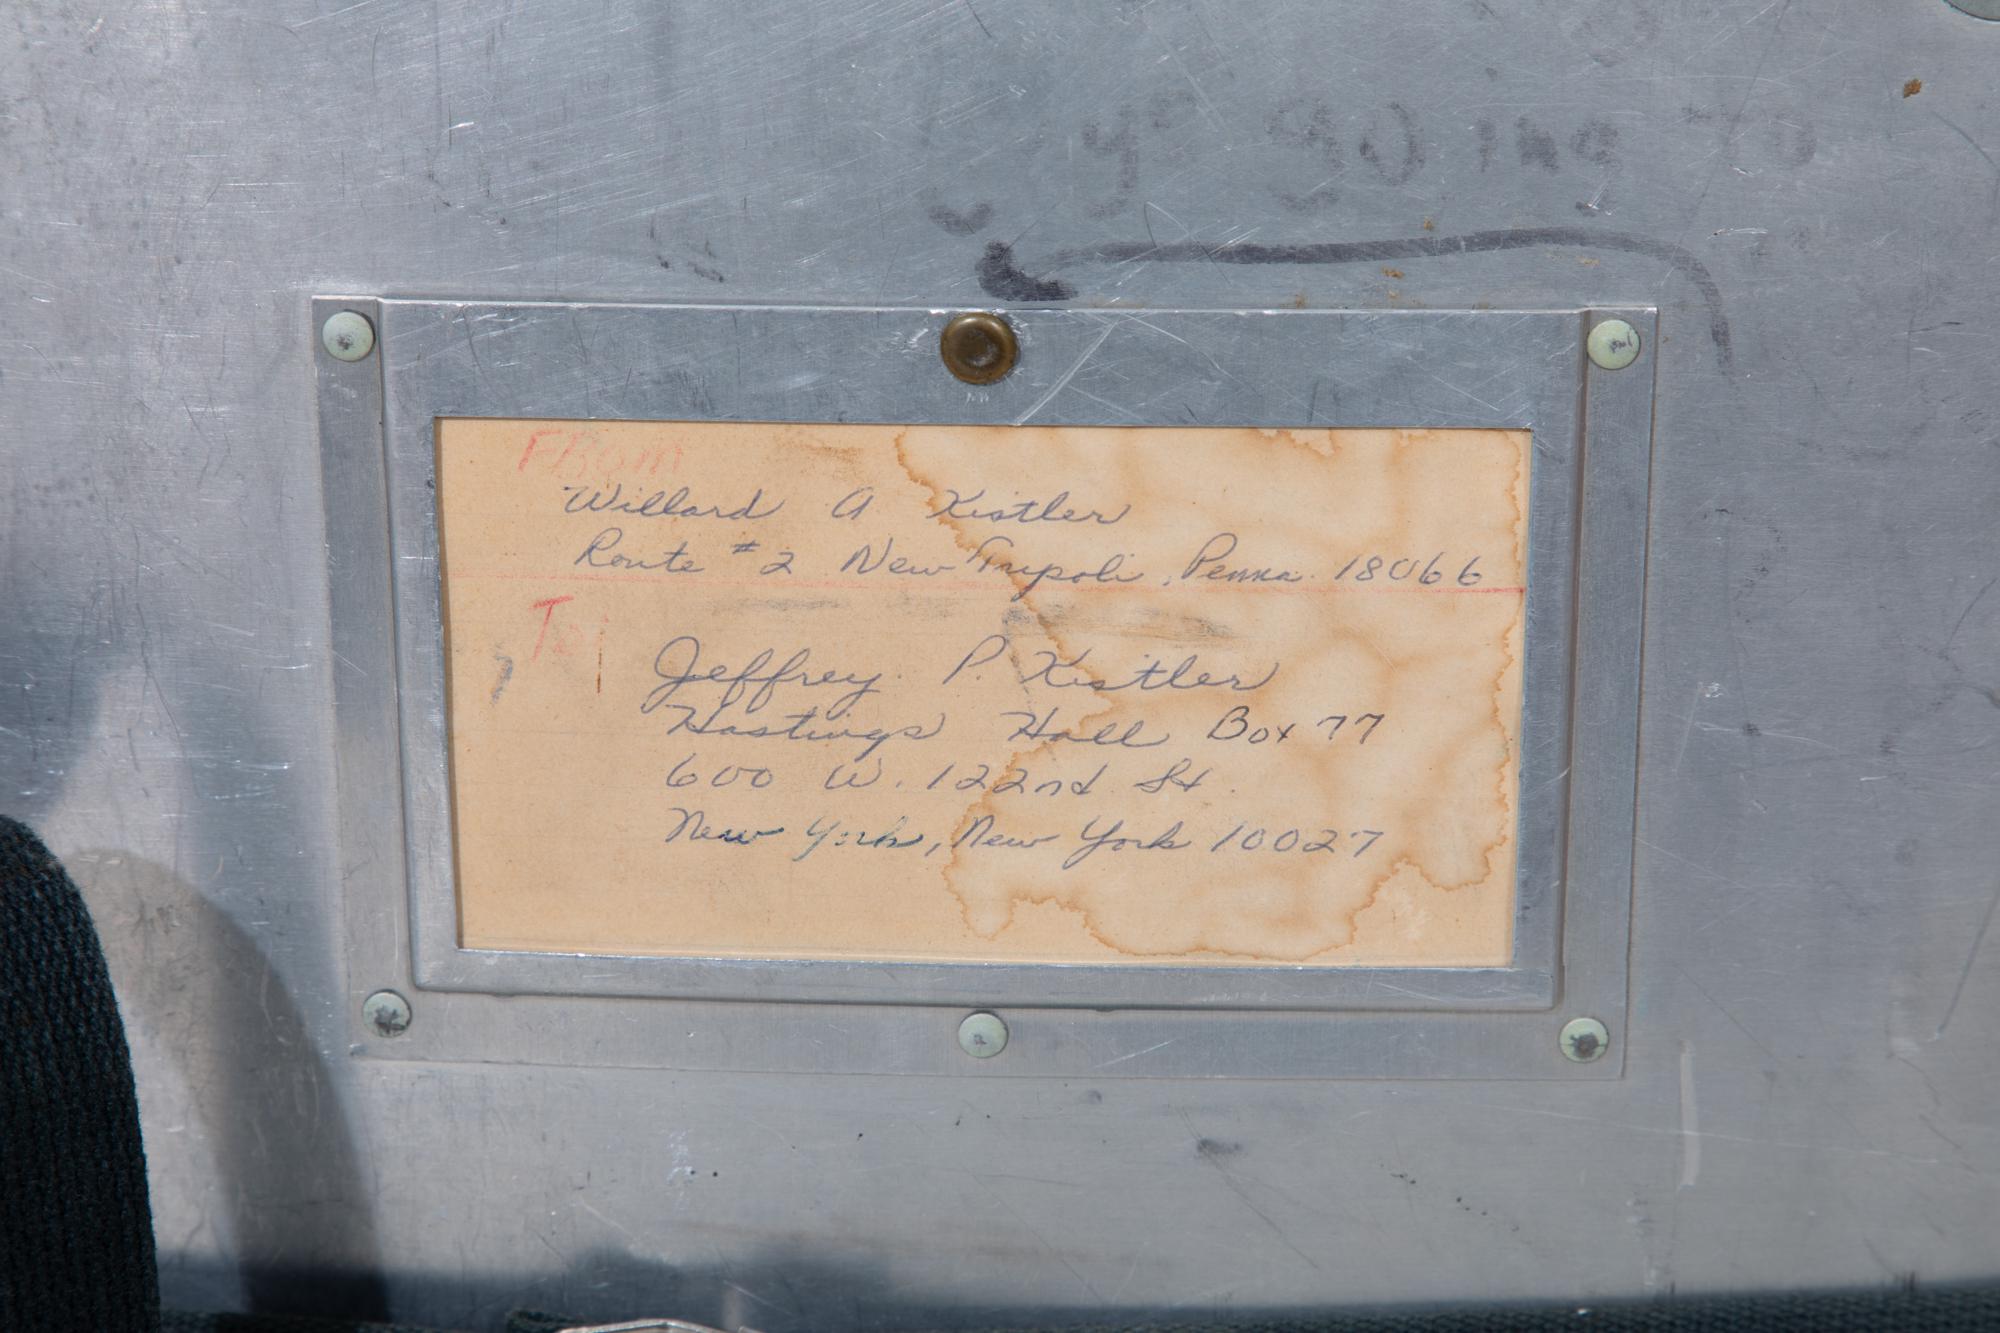 going To
FROM
Willard A Kistler
Route #2 New Tripoli, Penna. 18066
To:
Jeffrey P. Kistler
Hastings Hall Box 77
600 W. 122nd St.
New York, New York 10027